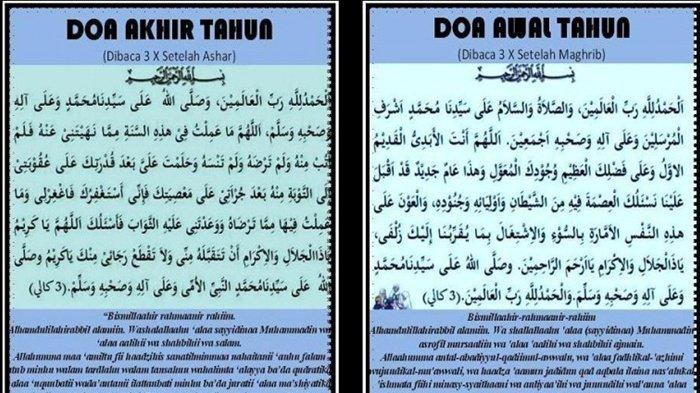 DOA AKHIR TAHUN
(Dibaca 3 X Setelah Ashar)
بِسْمِ اللَّهِ الرَّحْمَنِ الرَّحِيْمِ
اَلْحَمْدُ لِلَّهِ رَبِّ الْعَالَمِيْنَ، وَصَلَّى اللهُ عَلَى سَيِّدِنَا مُحَمَّدٍ وَعَلَى آلِهِ
وَصَحْبِهِ وَسَلَّمْ، اَللَّهُمَّ مَا عَمِلْتُ فِيْ هَذِهِ السَّنَةِ مِمَّا نَهَيْتَنِيْ عَنْهُ فَلَمْ
أَتُبْ مِنْهُ وَلَمْ تَرْضَهُ وَلَمْ تَنْسَهُ وَحَلَمْتَ عَلَيَّ بَعْدَ قُدْرَتِكَ عَلَى عُقُوْبَتِيْ
إِلَى التَّوْبَةِ مِنْهُ بَعْدَ جُرْأَتِيْ عَلَى مَعْصِيَتِكَ فَإِنِّي أَسْتَغْفِرُكَ فَاغْفِرْلِيْ وَمَا
عَمِلْتُ فِيْهَا مِمَّا تَرْضَاهُ وَوَعَدْتَنِيْ عَلَيْهِ الثَّوَابَ فَأَسْئَلُكَ اَللَّهُمَّ يَا كَرِيْمُ
يَاذَالْجَلَالِ وَالْإِكْرَامِ أَنْ تَتَقَبَّلَهُ مِنِّي وَلَا تَقْطَعْ رَجَائِيْ مِنْكَ يَاكَرِيْمُ وَصَلَّى
اللهُ عَلَى سَيِّدِنَا مُحَمَّدٍ النَّبِيِّ الْأُمِّي وَعَلَى آلِهِ وَصَحْبِهِ وَسَلَّمْ. (3 كالي)
"Bismillaahir rahmaanir rahiim.
Alhamdulillahirabbil alamiin. Washalallaahu 'alaa sayyidinaa Muhammadin wa
'alaa aalihii wa shahbihii wa salam.
Allahumma maa 'amiltu fii haadzihis sanatilmimmaa nahaitanii 'anhu falam
atub minhu walam tardlahu walam tansahuu wahalimta 'alayya ba'da qudratika
'alaa 'uqubatii wada'autanii ilattaubati minhu ba'da juratii 'alaa ma'shiyatika
DOA AWAL TAHUN
(Dibaca 3 X Setelah Maghrib)
بِسْمِ اللَّهِ الرَّحْمَنِ الرَّحِيْمِ
اَلْحَمْدُ لِلَّهِ رَبِّ الْعَالَمِيْنَ، وَالصَّلَاةُ وَالسَّلَامُ عَلَى سَيِّدِنَا مُحَمَّدٍ اَشْرَفِ
الْمُرْسَلِيْنَ وَعَلَى آلِهِ وَصَحْبِهِ اَجْمَعِيْنَ. اَللَّهُمَّ أَنْتَ الْأَبَدِيُّ الْقَدِيْمُ
الْأَوَّلُ وَعَلَى فَضْلِكَ الْعَظِيْمِ وُجُوْدِكَ الْمُعَوَّلِ وَهَذَا عَامٌ جَدِيْدٌ قَدْ أَقْبَلَ
عَلَيْنَا نَسْئَلُكَ الْعِصْمَةَ فِيْهِ مِنَ الشَّيْطَانِ وَأَوْلِيَائِهِ وَجُنُوْدِهِ، وَالْعَوْنَ عَلَى
هَذِهِ النَّفْسِ الْأَمَّارَةِ بِالسُّوْءِ وَالْإِشْتِغَالَ بِمَا يُقَرِّبُنَا إِلَيْكَ زُلْفَى،
يَاذَالْجَلَالِ وَالْإِكْرَامِ يَاأَرْحَمَ الرَّاحِمِيْنَ. وَصَلَّى اللهُ عَلَى سَيِّدِنَامُحَمَّدٍ
وَعَلَى آلِهِ وَصَحْبِهِ وَسَلَّمْ.وَالْحَمْدُ لِلَّهِ رَبِّ الْعَالَمِيْنَ.(3 كالي)
Bismillaahir rahmaanir-rahiim
Alhamdulillaahirabbil alamiin. Wa shallallaahu 'alaa (sayyidinaa) Muhammadin
asrofil mursaaliin wa 'alaa 'aalihi wa shahbihii ajmain.
Allaahumma antal-abadiyyul-qadiimul-awwalu, wa 'alaa fadhlikal-'azhimi
wujundikal-mu'awwali, wa haadza 'aamun jadidun qad aqbala ilaina nas'alukal
'ishmata fiihi minasy-syaithaani wa auliyaa'ihi wa junuudihi wal'auna 'alaa